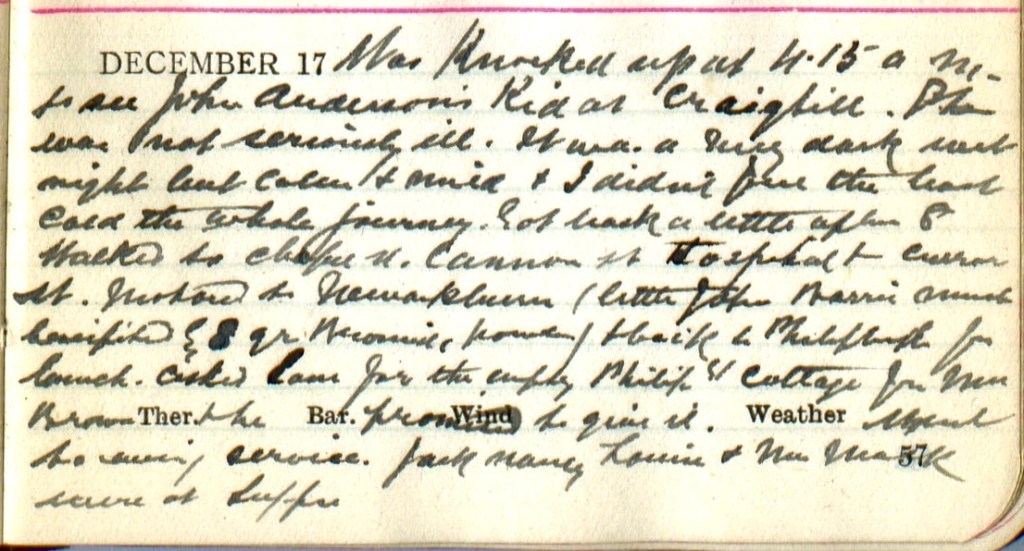 DECEMBER 17 Was Knocked up at 4.15 a m-
to see John Anderson's Kid at Craighill. She
was not seriously ill. It was a very dark wet
night but calm & mild & I didn't feel the least
cold the whole journey. Got back a little after 8
Walked to chapel st. Cannon st Hospital &
st. Motored to Newarkburn (little John Barrie much
benefited 8 gr Bromide, powder) & back to Philiphaugh for
lunch. Asked Lam for the empty Philip cottage for Mrs
Brown Ther. & he Bar. promised Wind to give it. Weather Went
to evening service. Jack Nancy Louie & Mrs Mack 57
were at Supper